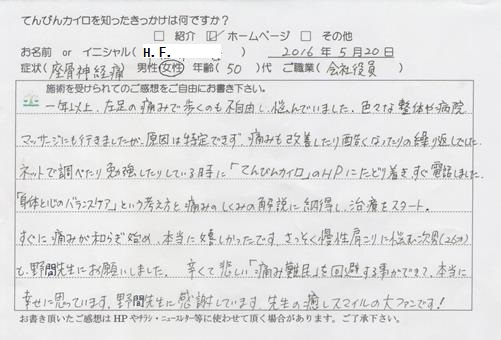 てんびんカイロを知ったきっかけは何ですか？
□ 紹介 ☑ ホームページ □ その他
お名前 or イニシャル( H.F. ) 2016年5月20日
症状( 座骨神経痛 ) 男性・女性 年齢( 50 )代 ご職業( 会社役員 )
施術を受けられてのご感想をご自由にお書き下さい。
一年以上、左足の痛みで歩くのも不自由し、悩んでいました。色々な整体や病院
マッサージにも行きましたが、原因は特定できず、痛みも改善したり酷くなったりの繰り返しでした。
ネットで調べたり勉強したりしている時に「てんびんカイロ」のHPにたどり着き、すぐ電話しました。
「身体と心のバランスケア」という考え方と痛みのしくみの解説に納得し、治療をスタート。
すぐに痛みが和らぎ始め、本当に嬉しかったです。さっそく慢性肩こりに悩む次男(26才)
も、野間先生にお願いしました。辛くて悲しい「痛み難民」を回避する事ができて、本当に
幸せに思っています。野間先生に感謝しています。先生の癒しスマイルの大ファンです！
お書き頂いたご感想はHPやチラシ・ニュースレター等に使わせて頂く場合があります。ご了承下さい。